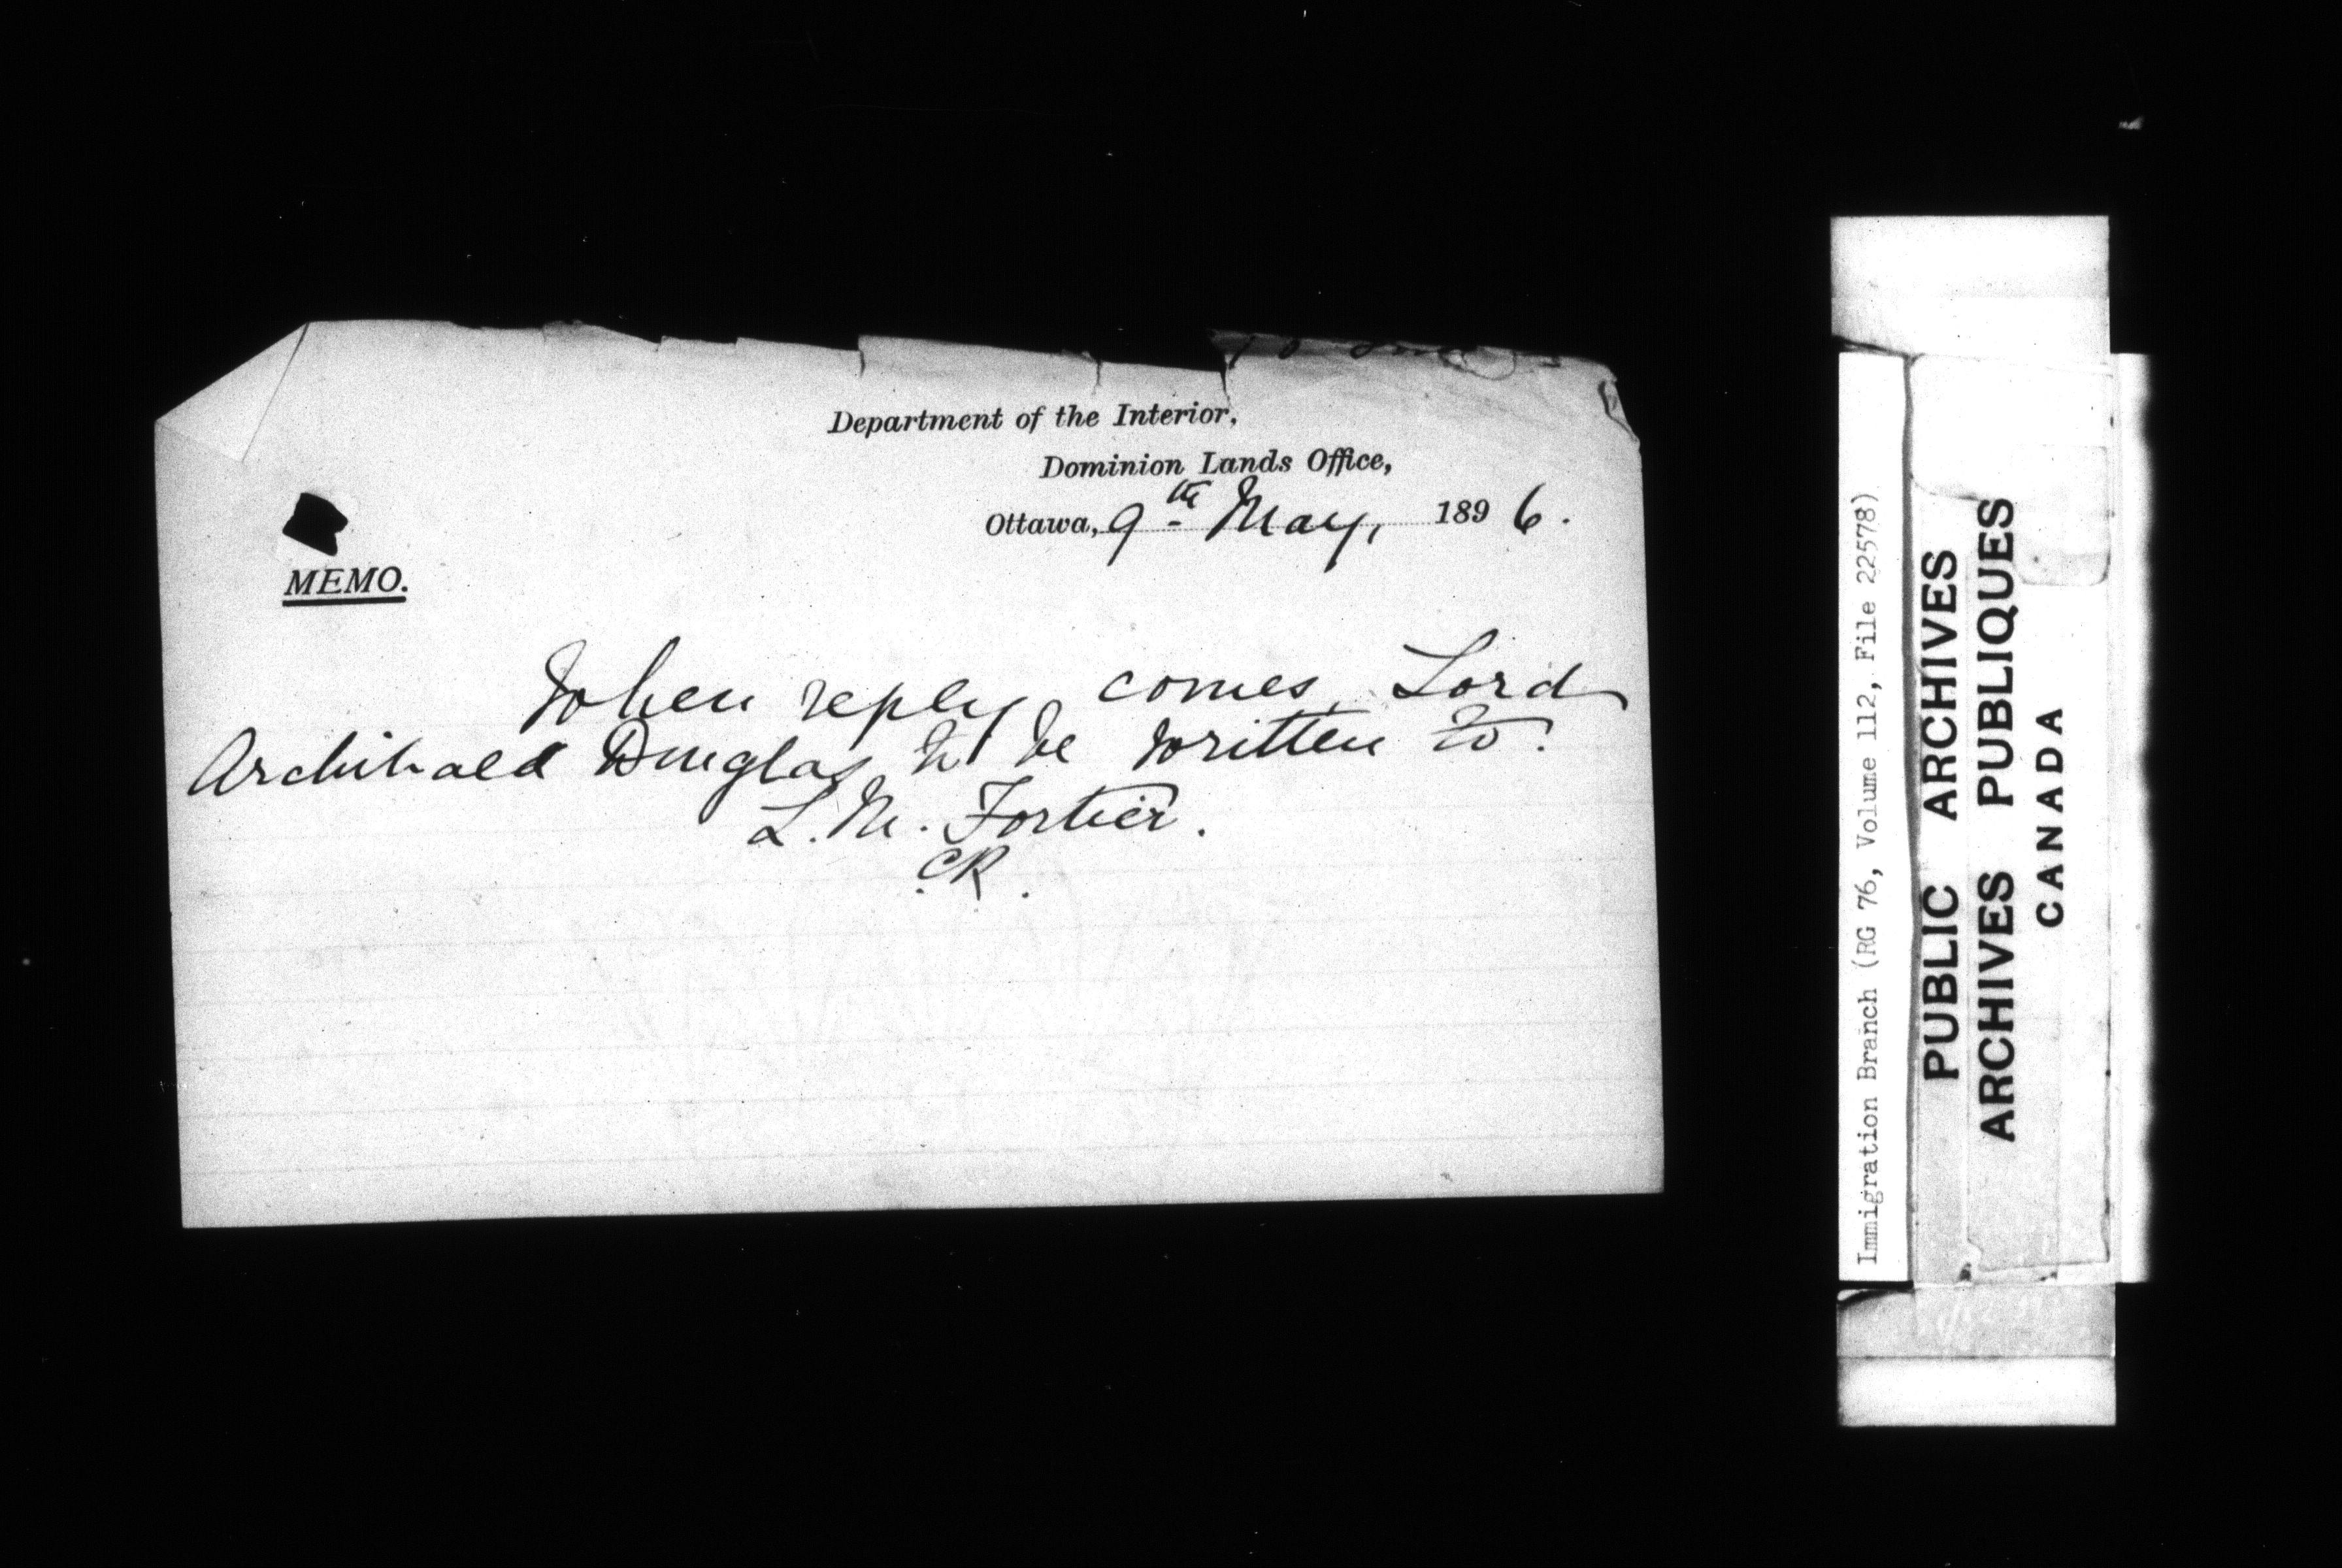 Department of the Interior,
Dominion Lands Office,
Ottawa, 9th May, 1896.
MEMO.
When reply comes, Lord
Archibald Douglas to be written to.
L. M. Fortier.
CR.
Immigration Branch (RG 76, Volume 112, File 22578)
PUBLIC ARCHIVES
ARCHIVES PUBLIQUES
CANADA